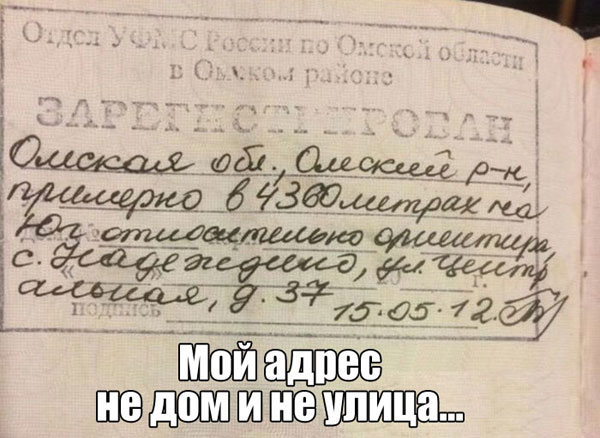 Отдел УФМС России по Омской области
в Омском районе
ЗАРЕГИСТРИРОВАН
Омская обл., Омский р-н,
примерно в 4360 метрах на
юг относительно ориентира,
с. Надеждино, ул. Центр
альная, д. 37 15.05.12.
подпись
Мой адрес
не дом и не улица...